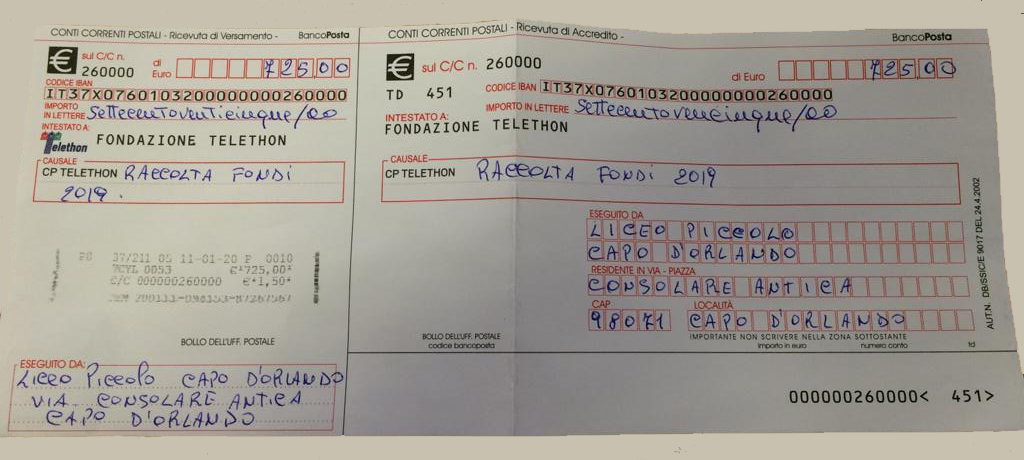 CONTI CORRENTI POSTALI - Ricevuta di Versamento - BancoPosta
€ sul C/C n. 260000 di Euro 72500
CODICE IBAN
IT37X0760103200000000260000
IMPORTO IN LETTERE Settecentoventicinque/00
INTESTATO A:
Telethon FONDAZIONE TELETHON
CAUSALE
CP TELETHON RACCOLTA FONDI
2019.
37/211 05 11-01-20 P 0010
VCYL 0053 €*725,00*
C/C 000000260000 €*1,50*
BOLLO DELL'UFF. POSTALE
ESEGUITO DA:
LICEO PICCOLO CAPO D'ORLANDO
VIA CONSOLARE ANTICA
CAPO D'ORLANDO
CONTI CORRENTI POSTALI - Ricevuta di Accredito - BancoPosta
€ sul C/C n. 260000 di Euro 72500
TD 451 CODICE IBAN IT37X0760103200000000260000
IMPORTO IN LETTERE Settecentovencinque/00
INTESTATO A:
FONDAZIONE TELETHON
CAUSALE
CP TELETHON RACCOLTA FONDI 2019
ESEGUITO DA
LICEO PICCOLO
CAPO D'ORLANDO
RESIDENTE IN VIA - PIAZZA
CONSOLARE ANTICA
CAP LOCALITÀ
98071 CAPO D'ORLANDO
BOLLO DELL'UFF. POSTALE
codice bancoposta
IMPORTANTE NON SCRIVERE NELLA ZONA SOTTOSTANTE
importo in euro numero conto td
000000260000< 451>
AUT.N. DB/SSIC/E 9017 DEL 24.4.2002